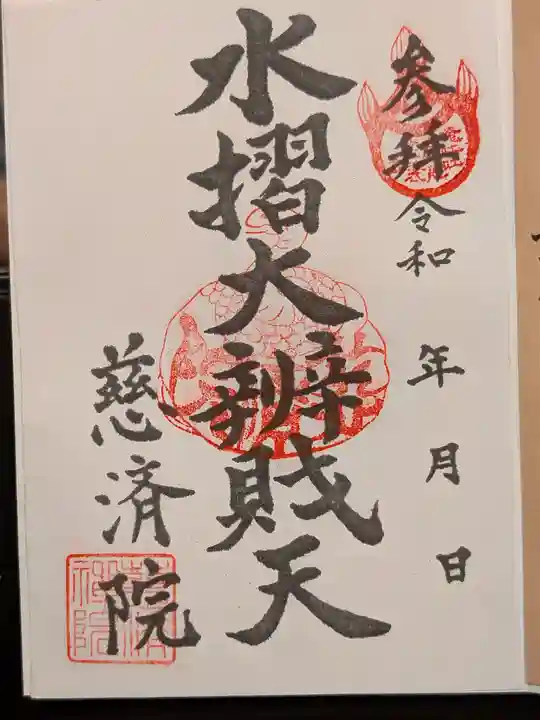 参拝 令和 年 月 日
水摺大辨財天
慈済院